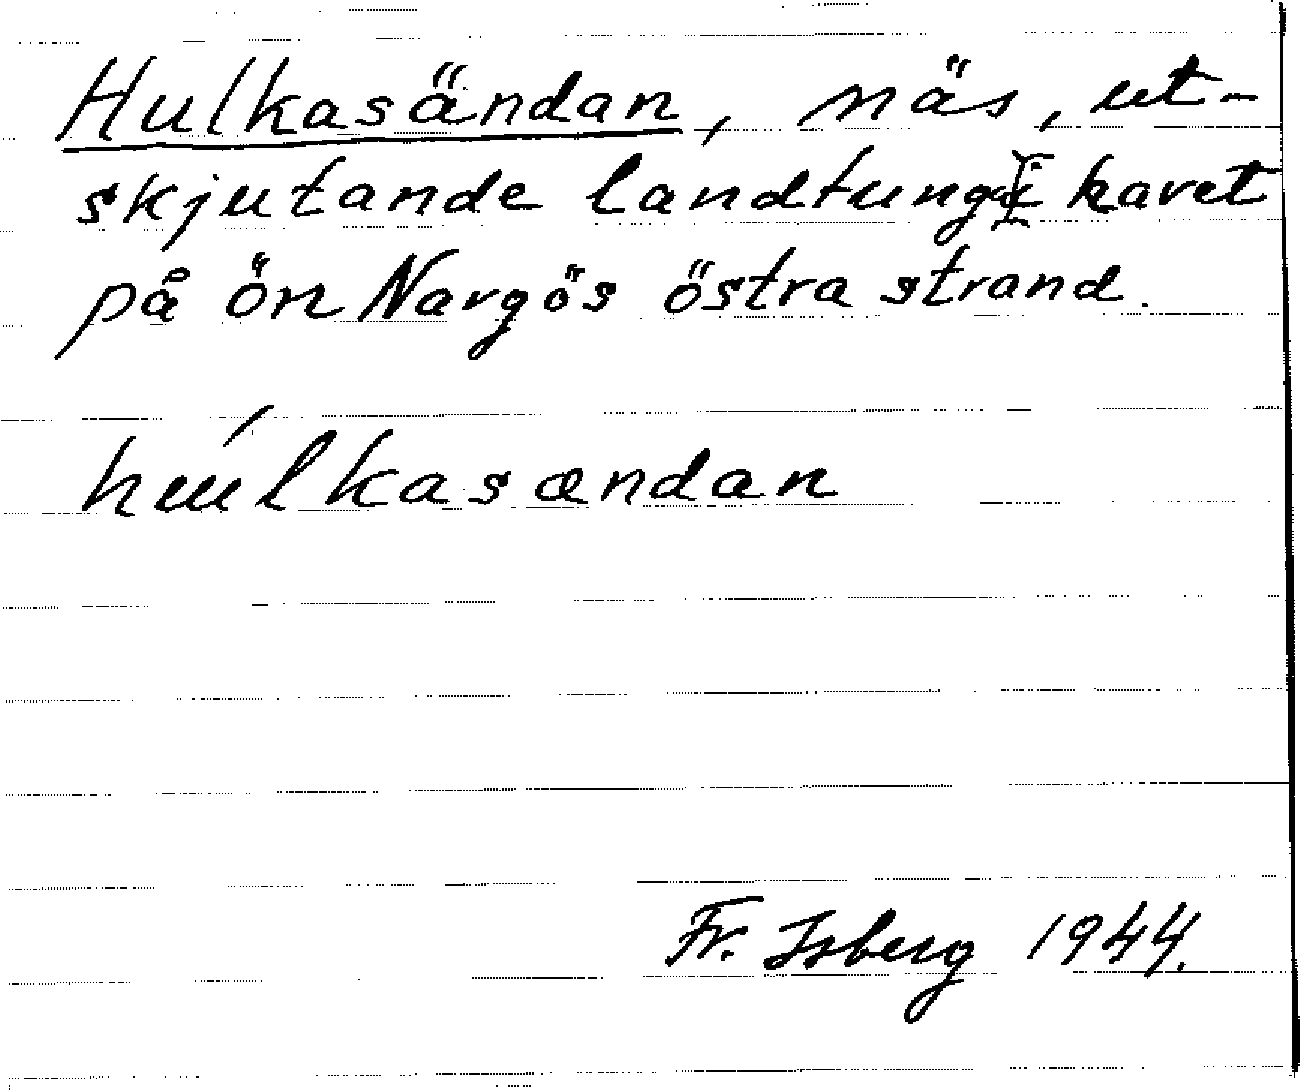 Hulkasändan, näs, ut-
skjutande landtunga i havet
på ön Nargös östra strand.
húlkasændan
Fr. Isberg 1944.